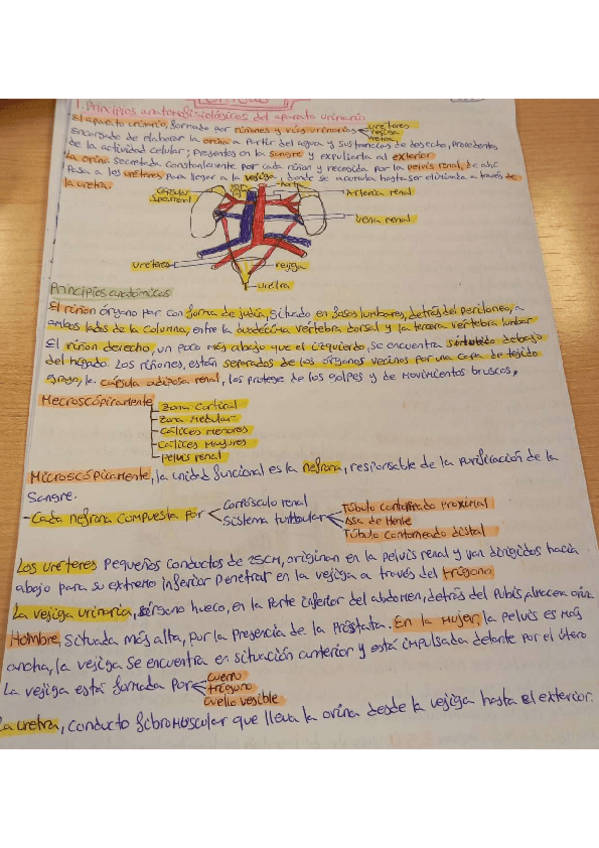 1. Principios anatomofisiológicos del aparato urinario
El aparato urinario, formado por riñones y vías urinarias
uréteres
vejiga
uretra
Encargado de elaborar la orina a partir del agua y sustancias de desecho, procedentes
de la actividad celular; presentes en la sangre y expulsarla al exterior.
La orina secretada constantemente por cada riñon y recogida por la pelvis renal, de ahí
Pasa a los uréteres para llegar a la vejiga, donde se acumula hasta ser eliminada a través de
la uretra.
Cápsula
suprarrenal
Aorta
Arteria renal
Vena renal
uréteres
vejiga
uretra
Principios anatómicos
El riñon órgano par con forma de judía, situado en fosas lumbares, detrás del peritoneo, a
ambos lados de la columna, entre la duodécima vertebra dorsal y la tercera vertebra lumbar
El riñon derecho, un poco más abajo que el izquierdo, se encuentra debajo
del hígado. Los riñones, están separados de los órganos vecinos por una capa de tejido
graso, la cápsula adiposa renal, los protege de los golpes y de movimientos bruscos,
Mecroscópicamente
Zona Cortical
Zona Medular
Cálices Menores
Cálices Mayores
pelvis renal
Microscópicamente, la unidad funcional es la nefrona, responsable de la purificación de la
Sangre.
- Cada nefrona compuesta por
Corpúsculo renal
Sistema tubular
Túbulo contorneado proximal
Asa de Henle
Túbulo contorneado distal
Los uréteres pequeños conductos de 25CM, originan en la pelvis renal y van dirigidos hacia
abajo para su extremo inferior penetrar en la vejiga a través del trígono.
La vejiga urinaria, órgano hueco, en la parte inferior del abdomen, detrás del pubis, almacena orina.
Hombre, situada más alta, por la presencia de la próstata. En la mujer, la pelvis es más
ancha, la vejiga se encuentra en situación anterior y está impulsada delante por el útero
La vejiga está formada por
cuerpo
trígono
cuello vesible
La uretra, conducto fibromuscular que lleva la orina desde la vejiga hasta el exterior.